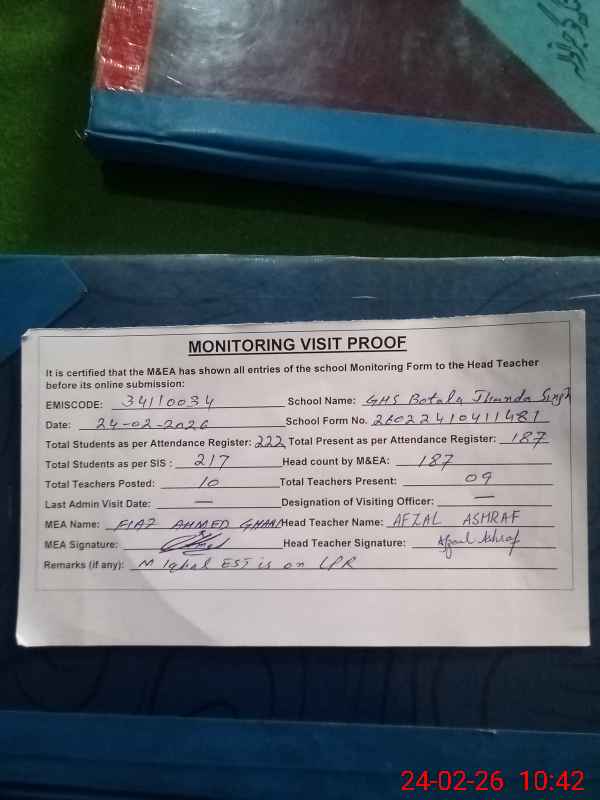 MONITORING VISIT PROOF
It is certified that the M&EA has shown all entries of the school Monitoring Form to the Head Teacher
before its online submission:
EMISCODE: 34110034 School Name: GHS Botala Jhanda Singh
Date: 24-02-2026 School Form No. 26022410411481
Total Students as per Attendance Register: 222 Total Present as per Attendance Register: 187
Total Students as per SIS : 217 Head count by M&EA: 187
Total Teachers Posted: 10 Total Teachers Present: 09
Last Admin Visit Date: — Designation of Visiting Officer: —
MEA Name: FIAZ AHMED GHANI Head Teacher Name: AFZAL ASHRAF
MEA Signature: Head Teacher Signature: Afzal Ashraf
Remarks (if any): M Iqbal EST is on LPR
24-02-26 10:42